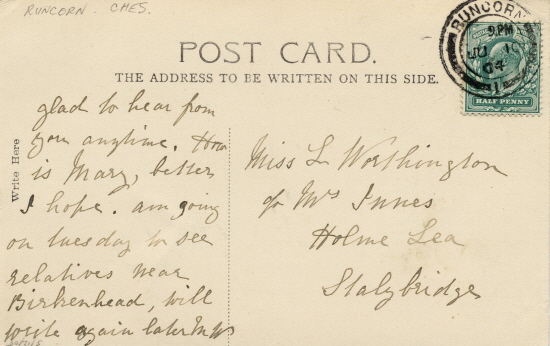 RUNCORN. CHES.
POST CARD.
THE ADDRESS TO BE WRITTEN ON THIS SIDE.
RUNCORN
9.PM
JU 10
04
1
HALF PENNY
Write Here
glad to hear from
you anytime. How
is Mary, better
I hope. am going
on tuesday to see
relatives near
Birkenhead, will
write again later
Miss L Worthington
c/o Mrs Innes
Holme Lea
Stalybridge